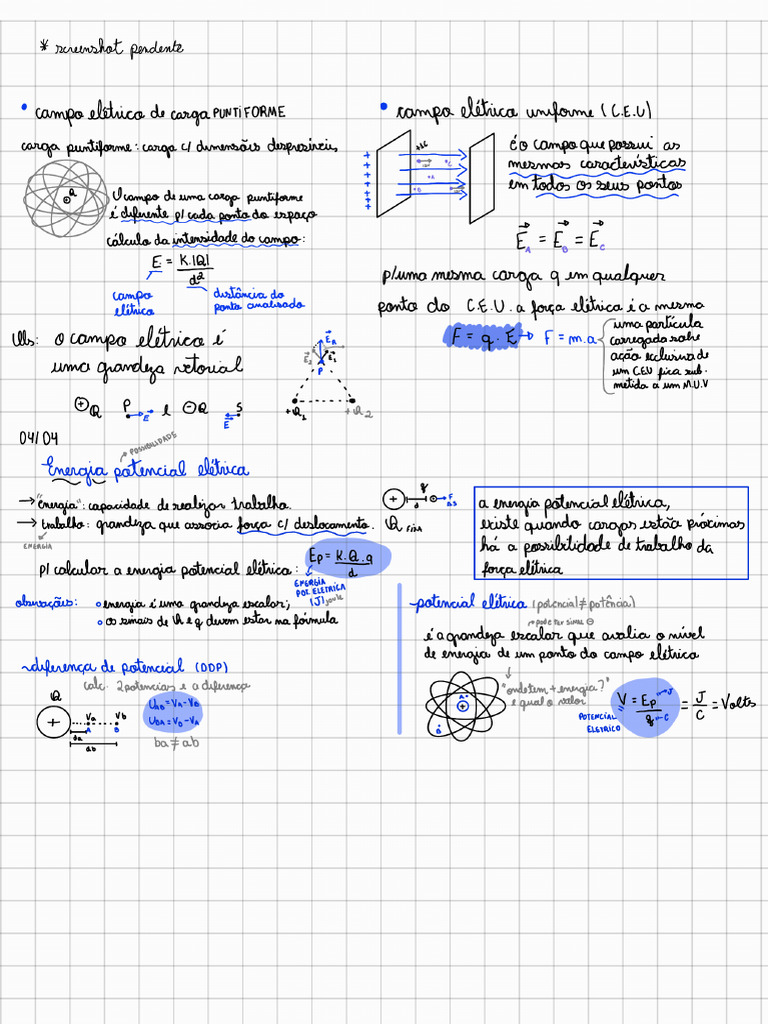 * screenshot pendente
• campo elétrico de carga PUNTIFORME
carga puntiforme: carga c/ dimensões despresíveis
Q
O campo de uma carga puntiforme
é diferente p/ cada ponto do espaço
cálculo da intensidade do campo:
E = K.|Q|
d²
campo
elétrico
distância do
ponto analisado
Obs: o campo elétrico é
uma grandeza vetorial
E_R
E₂ E₁
P
+Q₁ +Q₂
⊕Q P E e ⊖Q S
E
• campo elétrico uniforme (C.E.U)
é o campo que possui as
mesmas características
em todos os seus pontos
E_A = E_B = E_C
p/ uma mesma carga q em qualquer
ponto do C.E.U. a força elétrica é a mesma
F = q . E → F = m.a
uma partícula
carregada sobre
ação exclusiva de
um CEU fica sub-
metida a um M.U.V
04/04
POSSIBILIDADE
Energia potencial elétrica
→ "energia": capacidade de realizar trabalho.
→ trabalho: grandeza que associa força c/ deslocamento.
ENERGIA
p/ calcular a energia potencial elétrica:
Ep = K.Q.q
d
ENERGIA
POT. ELÉTRICA
(J) joule
observações: • energia é uma grandeza escalar;
• os sinais de Q e q devem estar na fórmula
+ q F
d ΔS
Q FIXA
a energia potencial elétrica,
existe quando cargas estão próximas
há a possibilidade de trabalho da
força elétrica
~diferença de potencial (DDP)
calc. 2 potenciais e a diferença
Q
+ Va Vb
A B
da
ab
U_AB = V_A - V_B
U_BA = V_B - V_A
ba ≠ ab
~potencial elétrico (potencial ≠ potência)
→ pode ter sinal ⊖
é a grandeza escalar que avalia o nível
de energia de um ponto do campo elétrico
"onde tem + energia?"
e qual o valor
A
B
V = Ep → J = J = Volts
q → C C
POTENCIAL
ELÉTRICO